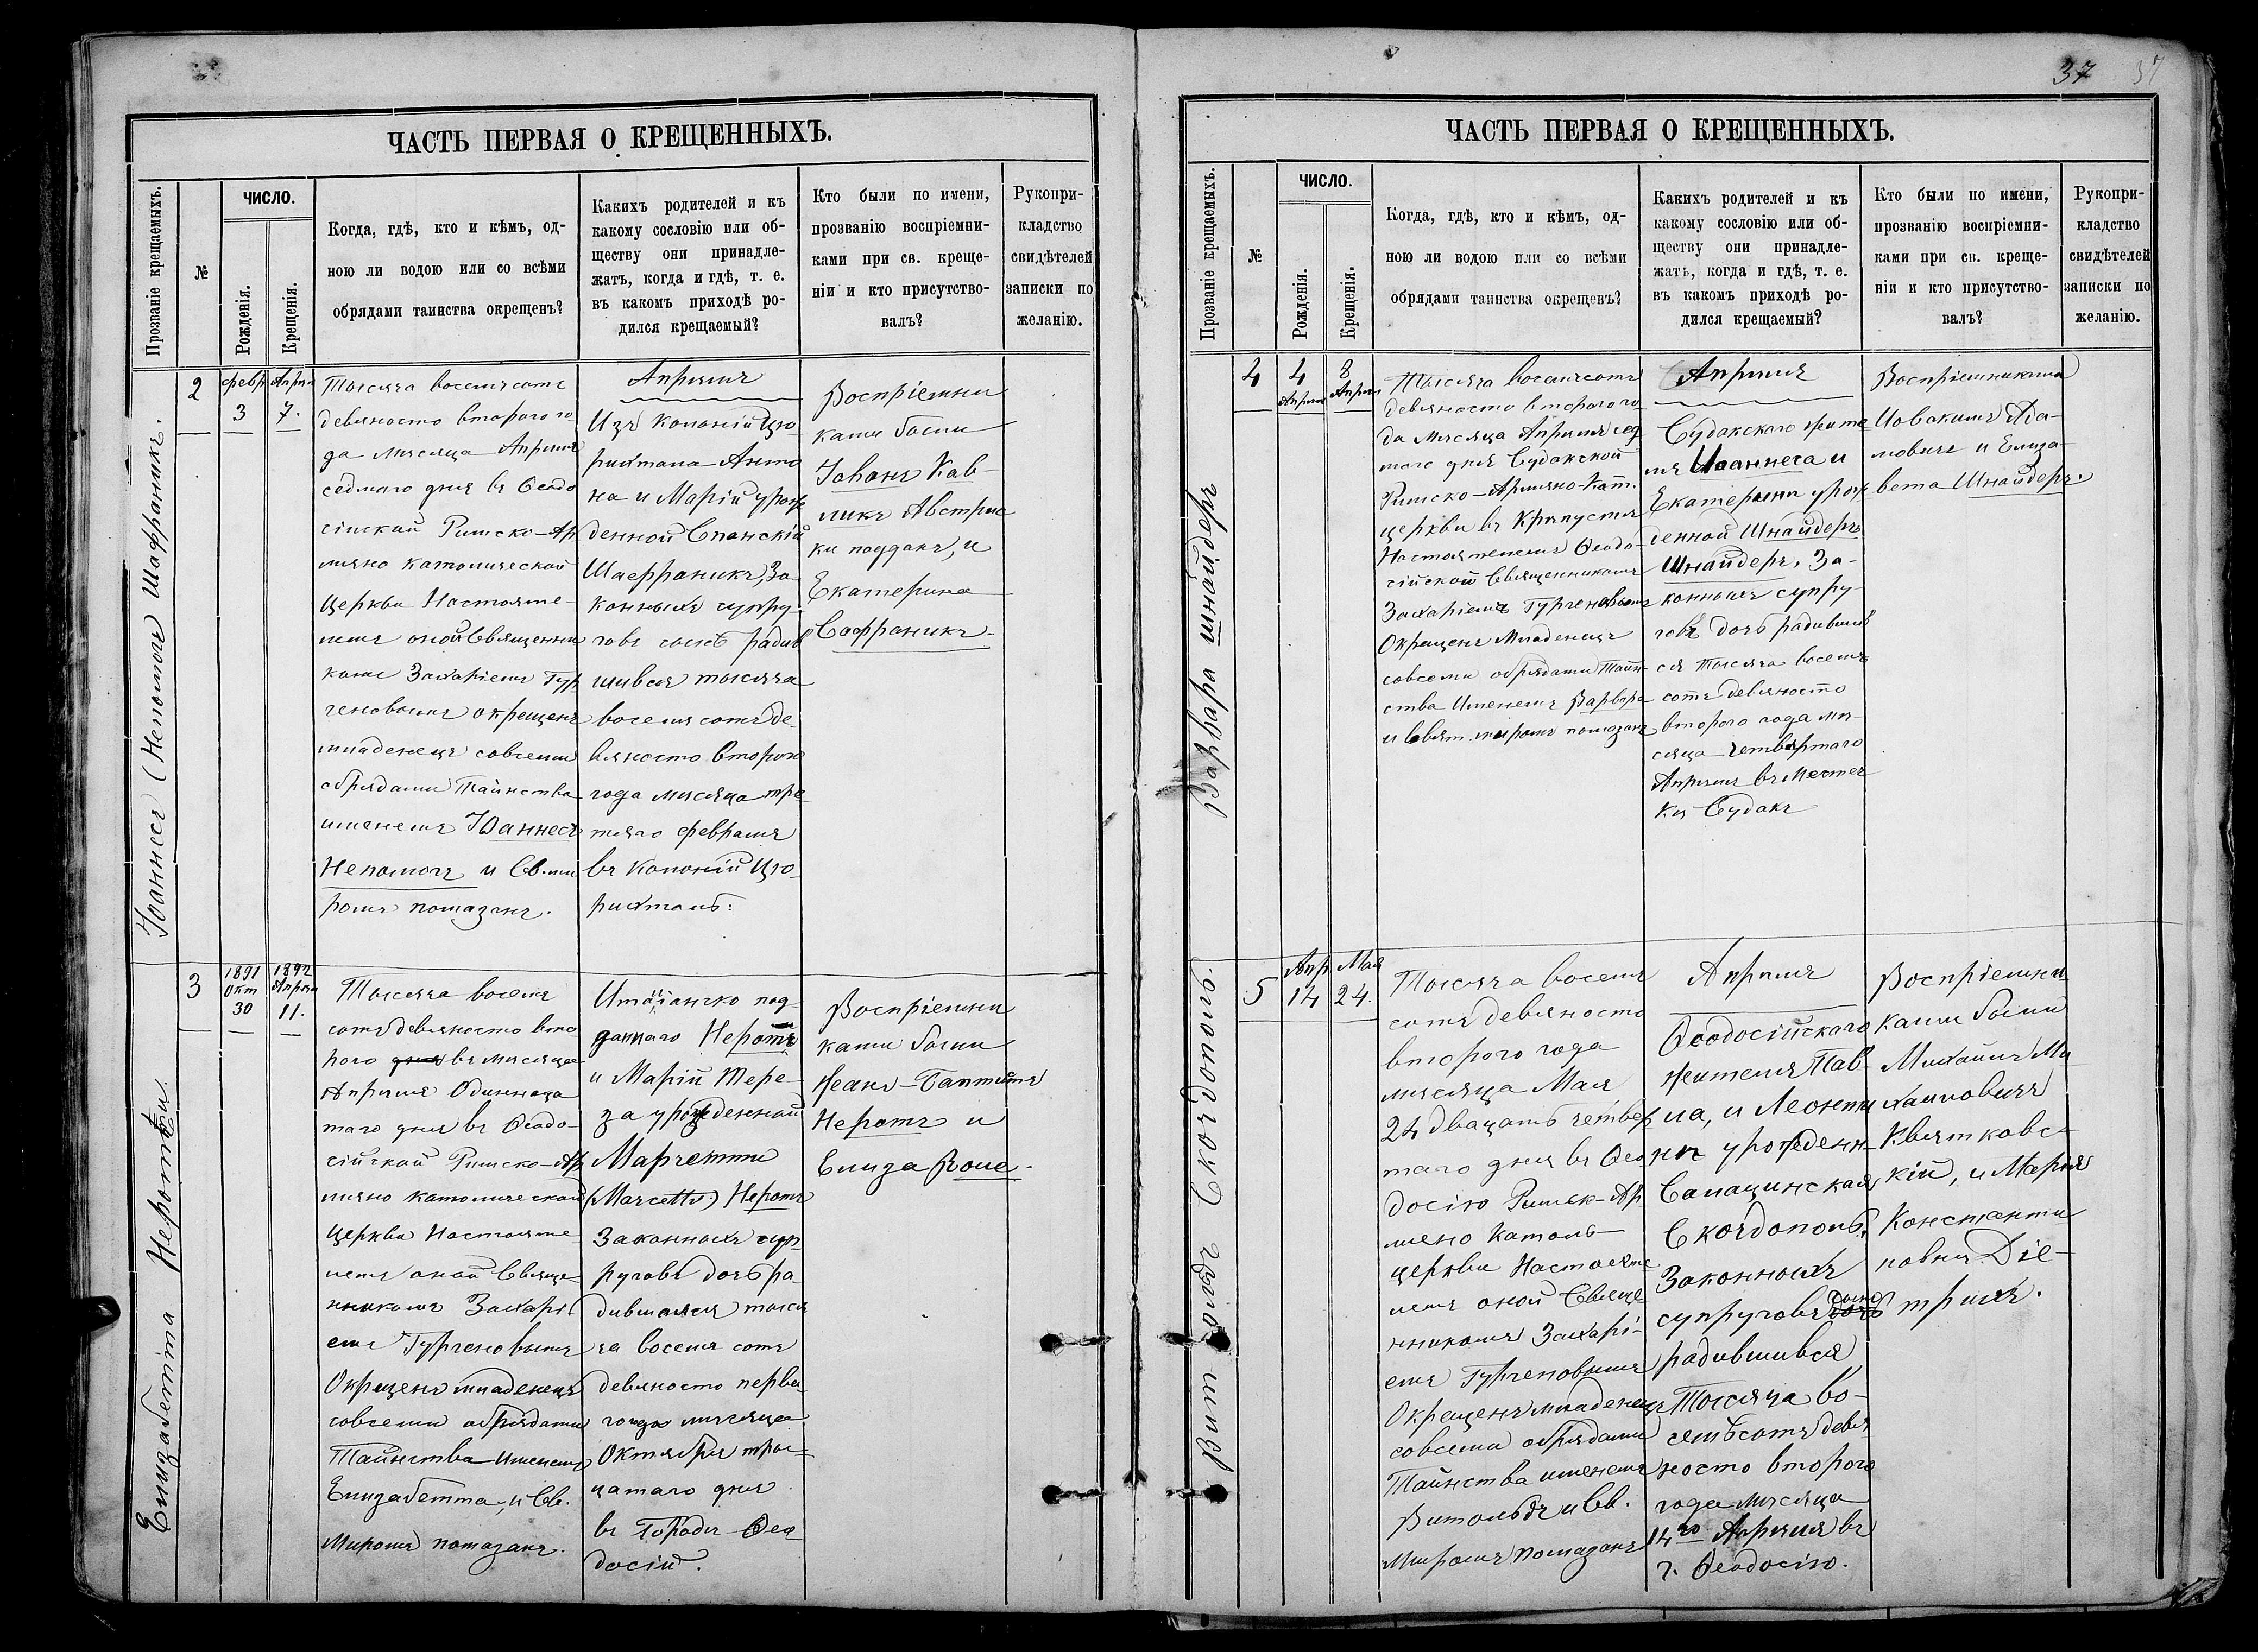 37 37
ЧАСТЬ ПЕРВАЯ О КРЕЩЕННЫХЪ.
Прозваніе крещаемыхъ.
№
ЧИСЛО.
Рожденія.
Крещенія.
Когда, гдѣ, кто и кѣмъ, од-
ною ли водою или со всѣми
обрядами таинства окрещенъ?
Каихъ родителей и къ
какому сословію или об-
ществу они принадле-
жатъ, когда и гдѣ, т. е.
въ какомъ приходѣ ро-
дился крещаемый?
Кто были по имени,
прозванію воспріемни-
ками при св. креще-
ніи и кто присутство-
валъ?
Рукопри-
кладство
свидѣтелей
записки по
желанію.
Іоаннесъ (Непомогъ Шафраникъ.
2
февр
3
Апрѣл
7.
Тысяча восемьсотъ
девяносто второго го
да мѣсяца Апрѣля
седмаго дня въ Ѳеодо
сійской Римско-Ар
мяно католической
Церкви Настояте-
лемъ оной Священни
комъ Захаріемъ Гур
геновымъ окрещенъ
младенецъ совсеми
обрядами Таинства
именемъ Іоаннесъ
Непомогъ и Св. ми
ромъ помазанъ.
Апрѣля
Изъ колоніи Цю-
рихталя Анто
на и Маріи урож
денной Спанскій
Шафраникъ, За-
конныхъ супру-
говъ сынъ радив
шився тысяча
восемьсотъ де-
вяносто второго
года мѣсяца тре
тяго февраля
въ колоній Цю-
рихталь:
Воспріемни
ками были
Іоhанъ Кав-
ликъ Австрис
ки поддакъ, и
Екатерина
Сафраникъ.
Елизабетта Неротти.
3
1891
Окт
30
1892
Апрѣл
11.
Тысяча восемь
сотъ девяносто вто
рого дня въ мѣсяца
Апрѣля Одиннаца
таго дня въ Ѳеодо-
сійской Римско-Ар
мяно католической
Церкви Настояте-
лемъ оной Свяще-
нникомъ Захарі
емъ Гургеновымъ
Окрещенъ младенецъ
совсеми обрядами
Таинства Именемъ
Елизабетта, и Св.
Миромъ помазанъ.
даннаго Неротъ
и Марій Тере-
за урожденной
Марчетти
(Marcetti) Неротъ
Законныхъ суп
руговъ дочь ра
дившаяся тыся
ча восемь сотъ
девяносто перва
го года мѣсяца
Октября трис-
цатаго дня
въ Городѣ Ѳео
досій.
Воспріемни
ками были
Жеанъ-Баптистъ
Неротъ и
Елиза Роше.
ЧАСТЬ ПЕРВАЯ О КРЕЩЕННЫХЪ.
Прозваніе крещаемыхъ.
№
ЧИСЛО.
Рожденія.
Крещенія.
Когда, гдѣ, кто и кѣмъ, од-
ною ли водою или со всѣми
обрядами таинства окрещенъ?
Какихъ родителей и къ
какому сословію или об-
ществу они принадле-
жатъ, когда и гдѣ, т. е.
въ какомъ приходѣ ро-
дился крещаемый?
Кто были по имени,
прозванію воспріемни-
ками при св. креще-
ніи и кто присутство-
валъ?
Рукопри-
кладство
свидѣтелей
записки по
желанію.
Варвара Шнайдеръ
4
4
Апрѣля
8
Апрѣл
Тысяча восемьсотъ
девяносто второго го
да Мѣсяца Апрѣля
маго дня Судакской
Римско-Армяно-Кат.
церкви въ
Настоятелемъ Ѳеодо-
сійской Священникомъ
Захаріемъ Гургеновымъ
Окрещенъ Младенецъ
совсеми обрядами Таин-
ства Именемъ Варвара
и Свят. миромъ помазанъ
Апрѣля
Судакскаго жите
ля Иоаннеса и
Екатерини урож
денной Шнайдеръ
Шнайдеръ. За-
конныхъ супру-
говъ дочь радивша
ся тысяча восемь
сотъ девяносто
второго года мѣ-
сяца четвяртаго
Апрѣля въ Местеч
кѣ Судакъ
Воспріемниками
Иовакимъ Ада-
мовичъ и Елиза-
вета Шнайдеръ.
Витольдъ Скогдополь.
5
Апр
14
Мая
24.
Тысяча восемь
сотъ девяносто
второго года
мѣсяца Мая
24 двацать четвер
таго дня въ Ѳео
досію Римск-Ар
мяно Католь-
церкви Настояте
лемъ оной Свяще
нникомъ Захарі-
емъ Гургеновымъ
Окрещенъ младенецъ
совсеми обрядами
Таинства именемъ
Витольдъ и Св.
Миромъ помазанъ
Апрѣля
Ѳеодосійскаго
жителя Пав-
ла, и Леонти
нѣ урожденн-
Сапацинская
Скогдополь.
Законныхъ
супруговъ дочь сынъ
радившився
Тысяча во-
семьсотъ девя
носто второго
года мѣсяца
14го Апрѣля въ
г. Ѳеодосію.
Воспріемни
ками были
Михаилъ Ми
хаиловичъ
Квятковс-
кій, и Марія
Константи
новна Діе-
трихъ.